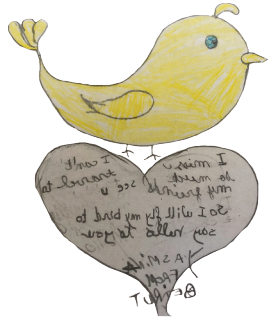 I miss
so much
my friends
I can't
travel to
see u
So I will fly my bird to
say hello to you
YASMINA
FROM
BEIRUT